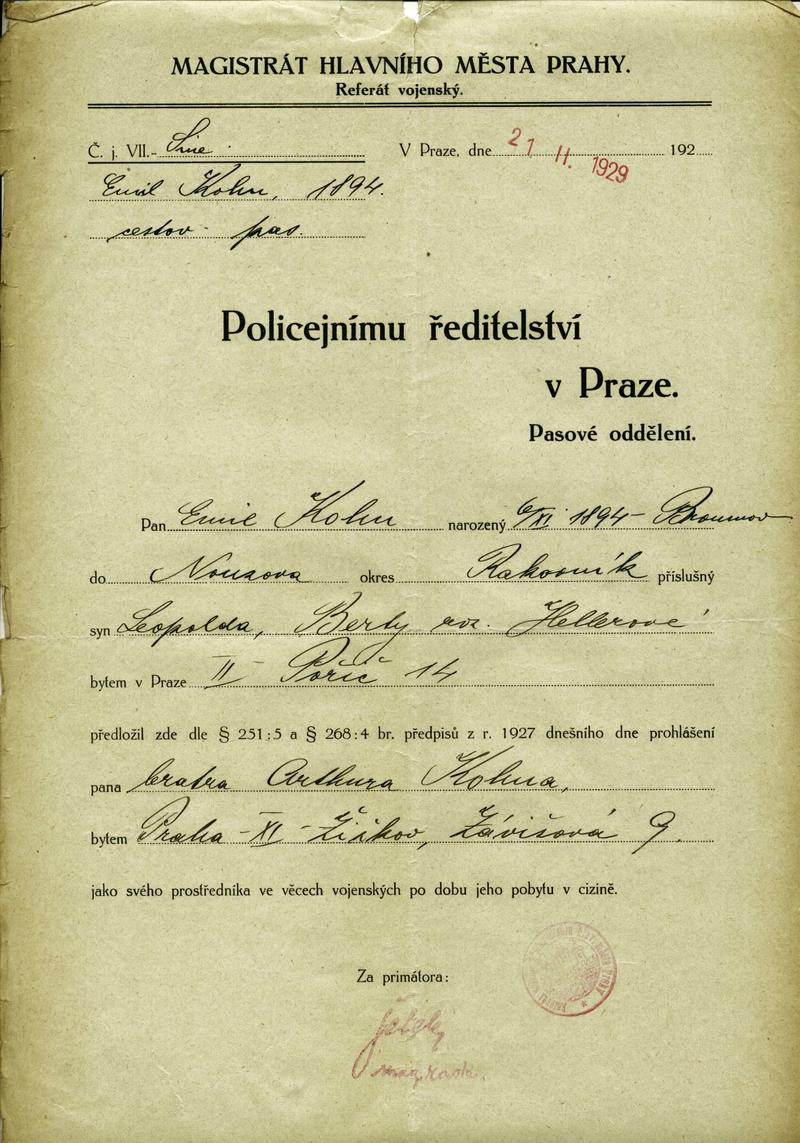 MAGISTRÁT HLAVNÍHO MĚSTA PRAHY.
Referát vojenský.
Č. j. VII.- Sine
V Praze, dne 21 11. 1929 192
Emil Kohn, 1894.
cestov. pas.
Policejnímu ředitelství
v Praze.
Pasové oddělení.
Pan Emil Kohn narozený 6/XI 1894 - Broumov
do Nouzova okres Rakovník příslušný
syn Leopolda, Berty roz. Hellerové
bytem v Praze II - Poříč 14
předložil zde dle § 251:5 a § 268:4 br. předpisů z r. 1927 dnešního dne prohlášení
pana bratra Arthura Kohna,
bytem Praha - XI - Žižkov, Závišova 9.
jako svého prostředníka ve věcech vojenských po dobu jeho pobytu v cizině.
Za primátora: